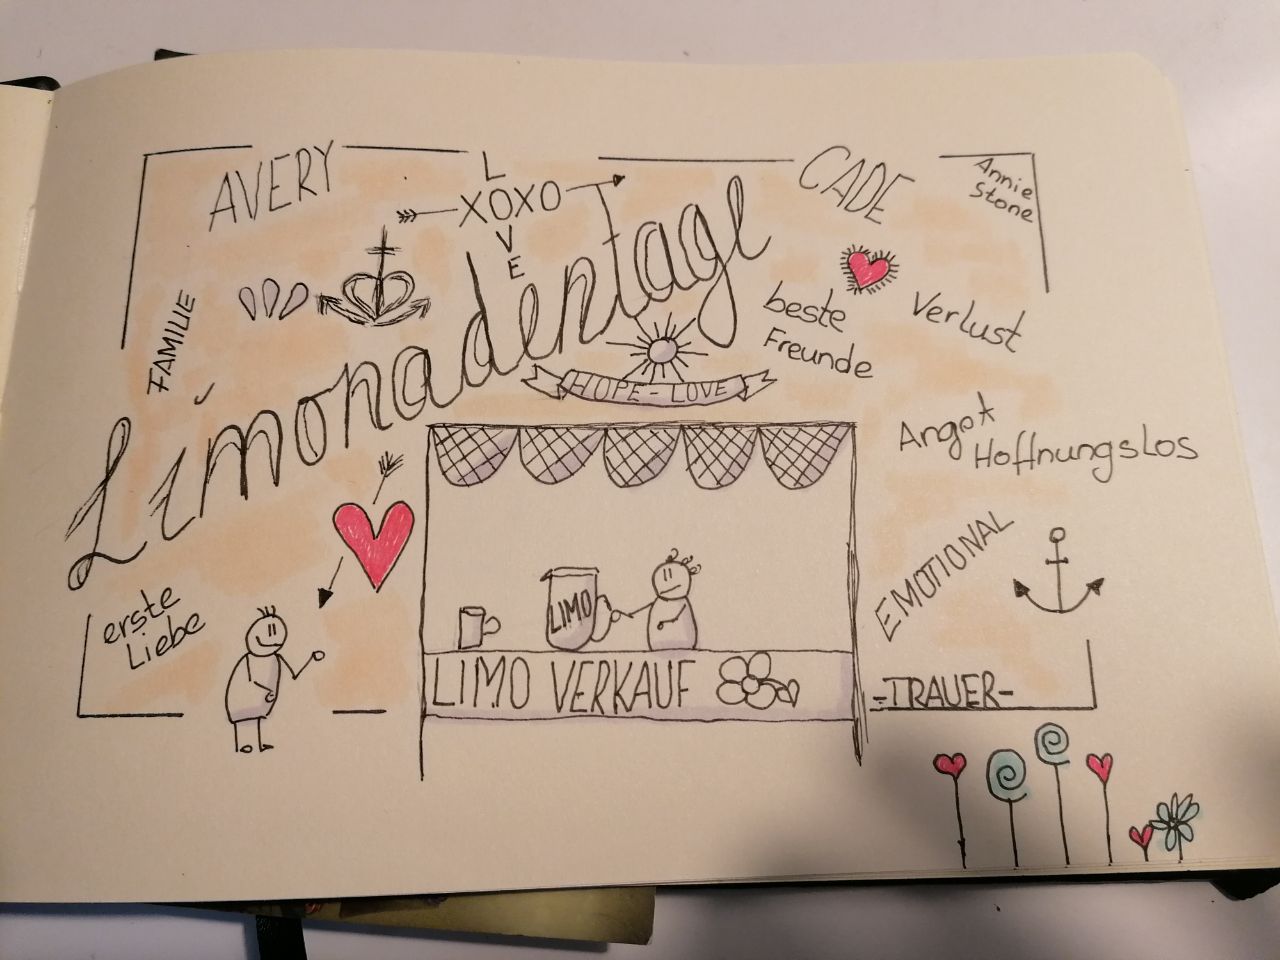 AVERY
L
XOXO
V
E
CADE
Annie
Stone
FAMILIE
Limonadentage
beste
Freunde
Verlust
HOPE - LOVE
Angst
Hoffnungslos
erste
Liebe
EMOTIONAL
LIMO
LIMO VERKAUF
-TRAUER-